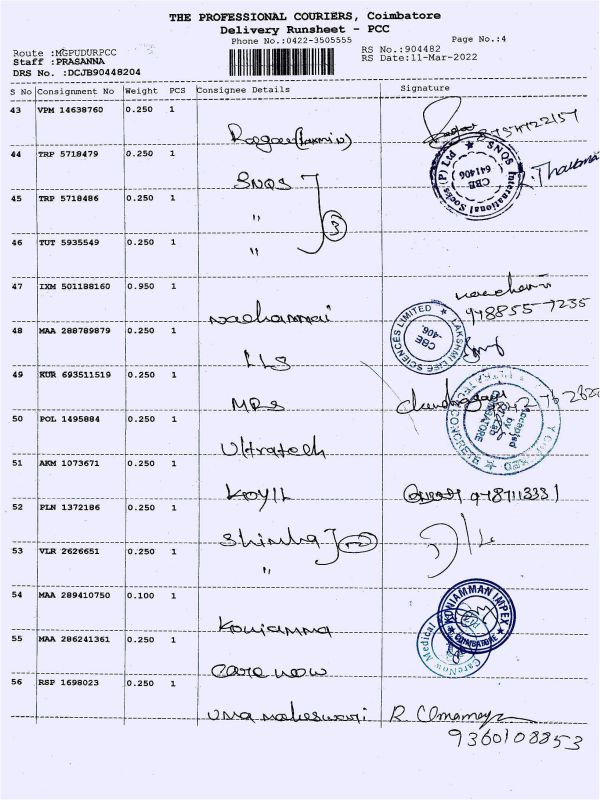 THE PROFESSIONAL COURIERS, Coimbatore
Delivery Runsheet - PCC
Phone No.:0422-3505555
Page No.:4
Route :MGPUDURPCC
Staff :PRASANNA
DRS No. :DCJB90448204
RS No.:904482
RS Date:11-Mar-2022
S No Consignment No Weight PCS Consignee Details Signature
43 VPM 14638760 0.250 1
44 TRP 5718479 0.250 1 SNQS
SNQS International Socks(P) Ltd CBE 641406
45 TRP 5718486 0.250 1 "
3
46 TUT 5935549 0.250 1 "
47 IXM 501188160 0.950 1
48 MAA 288789879 0.250 1 LLS
LAKSHMI LIFE SCIENCES LIMITED CBE -406.
49 KUR 693511519 0.250 1 MRS
50 POL 1495884 0.250 1 Ultratech
Accepted by
51 AKM 1073671 0.250 1 KOYIL
52 PLN 1372186 0.250 1
53 VLR 2626651 0.250 1 "
54 MAA 289410750 0.100 1 Koniamma
KONIAMMAN IMPEX COIMBATORE
55 MAA 286241361 0.250 1 Care now
CareNow Medical
56 RSP 1698023 0.250 1 Uma maheswari
9360108853